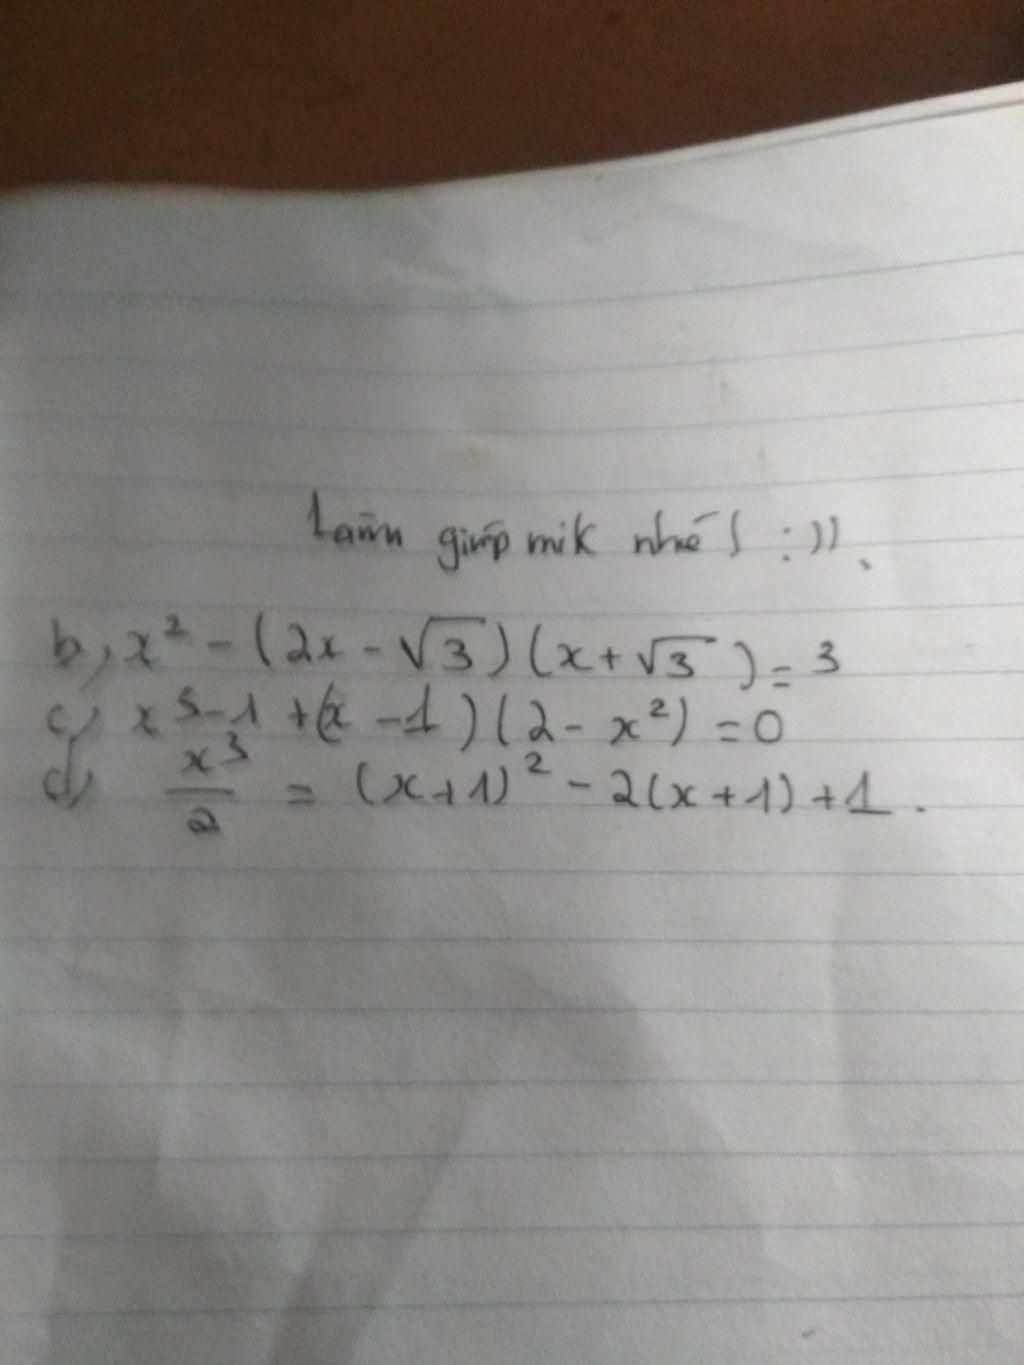 Làm giúp mik nhé! :)).
b, x² - (2x - √3)(x + √3) = 3
c, x⁵ - 1 + (x - 1)(2 - x²) = 0
d, x³/2 = (x+1)² - 2(x+1) + 1.